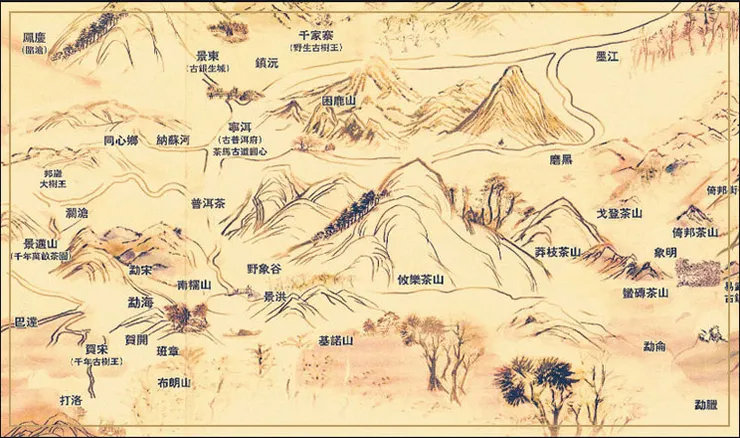 鳳慶
(臨滄)
千家寨
(野生古樹王)
墨江
景東
(古銀生城)
鎮沅
困鹿山
寧洱
(古普洱府)
茶馬古道圓心
同心鄉
納蘇河
磨黑
邦崴
大樹王
倚邦街
瀾滄
普洱茶
戈登茶山
倚邦茶山
景邁山
(千年萬畝茶園)
莽枝茶山
象明
勐宋
野象谷
攸樂茶山
南糯山
景洪
蠻磚茶山
勐海
巴達
賀開
基諾山
勐侖
賀宋
(千年古樹王)
班章
布朗山
打洛
勐臘